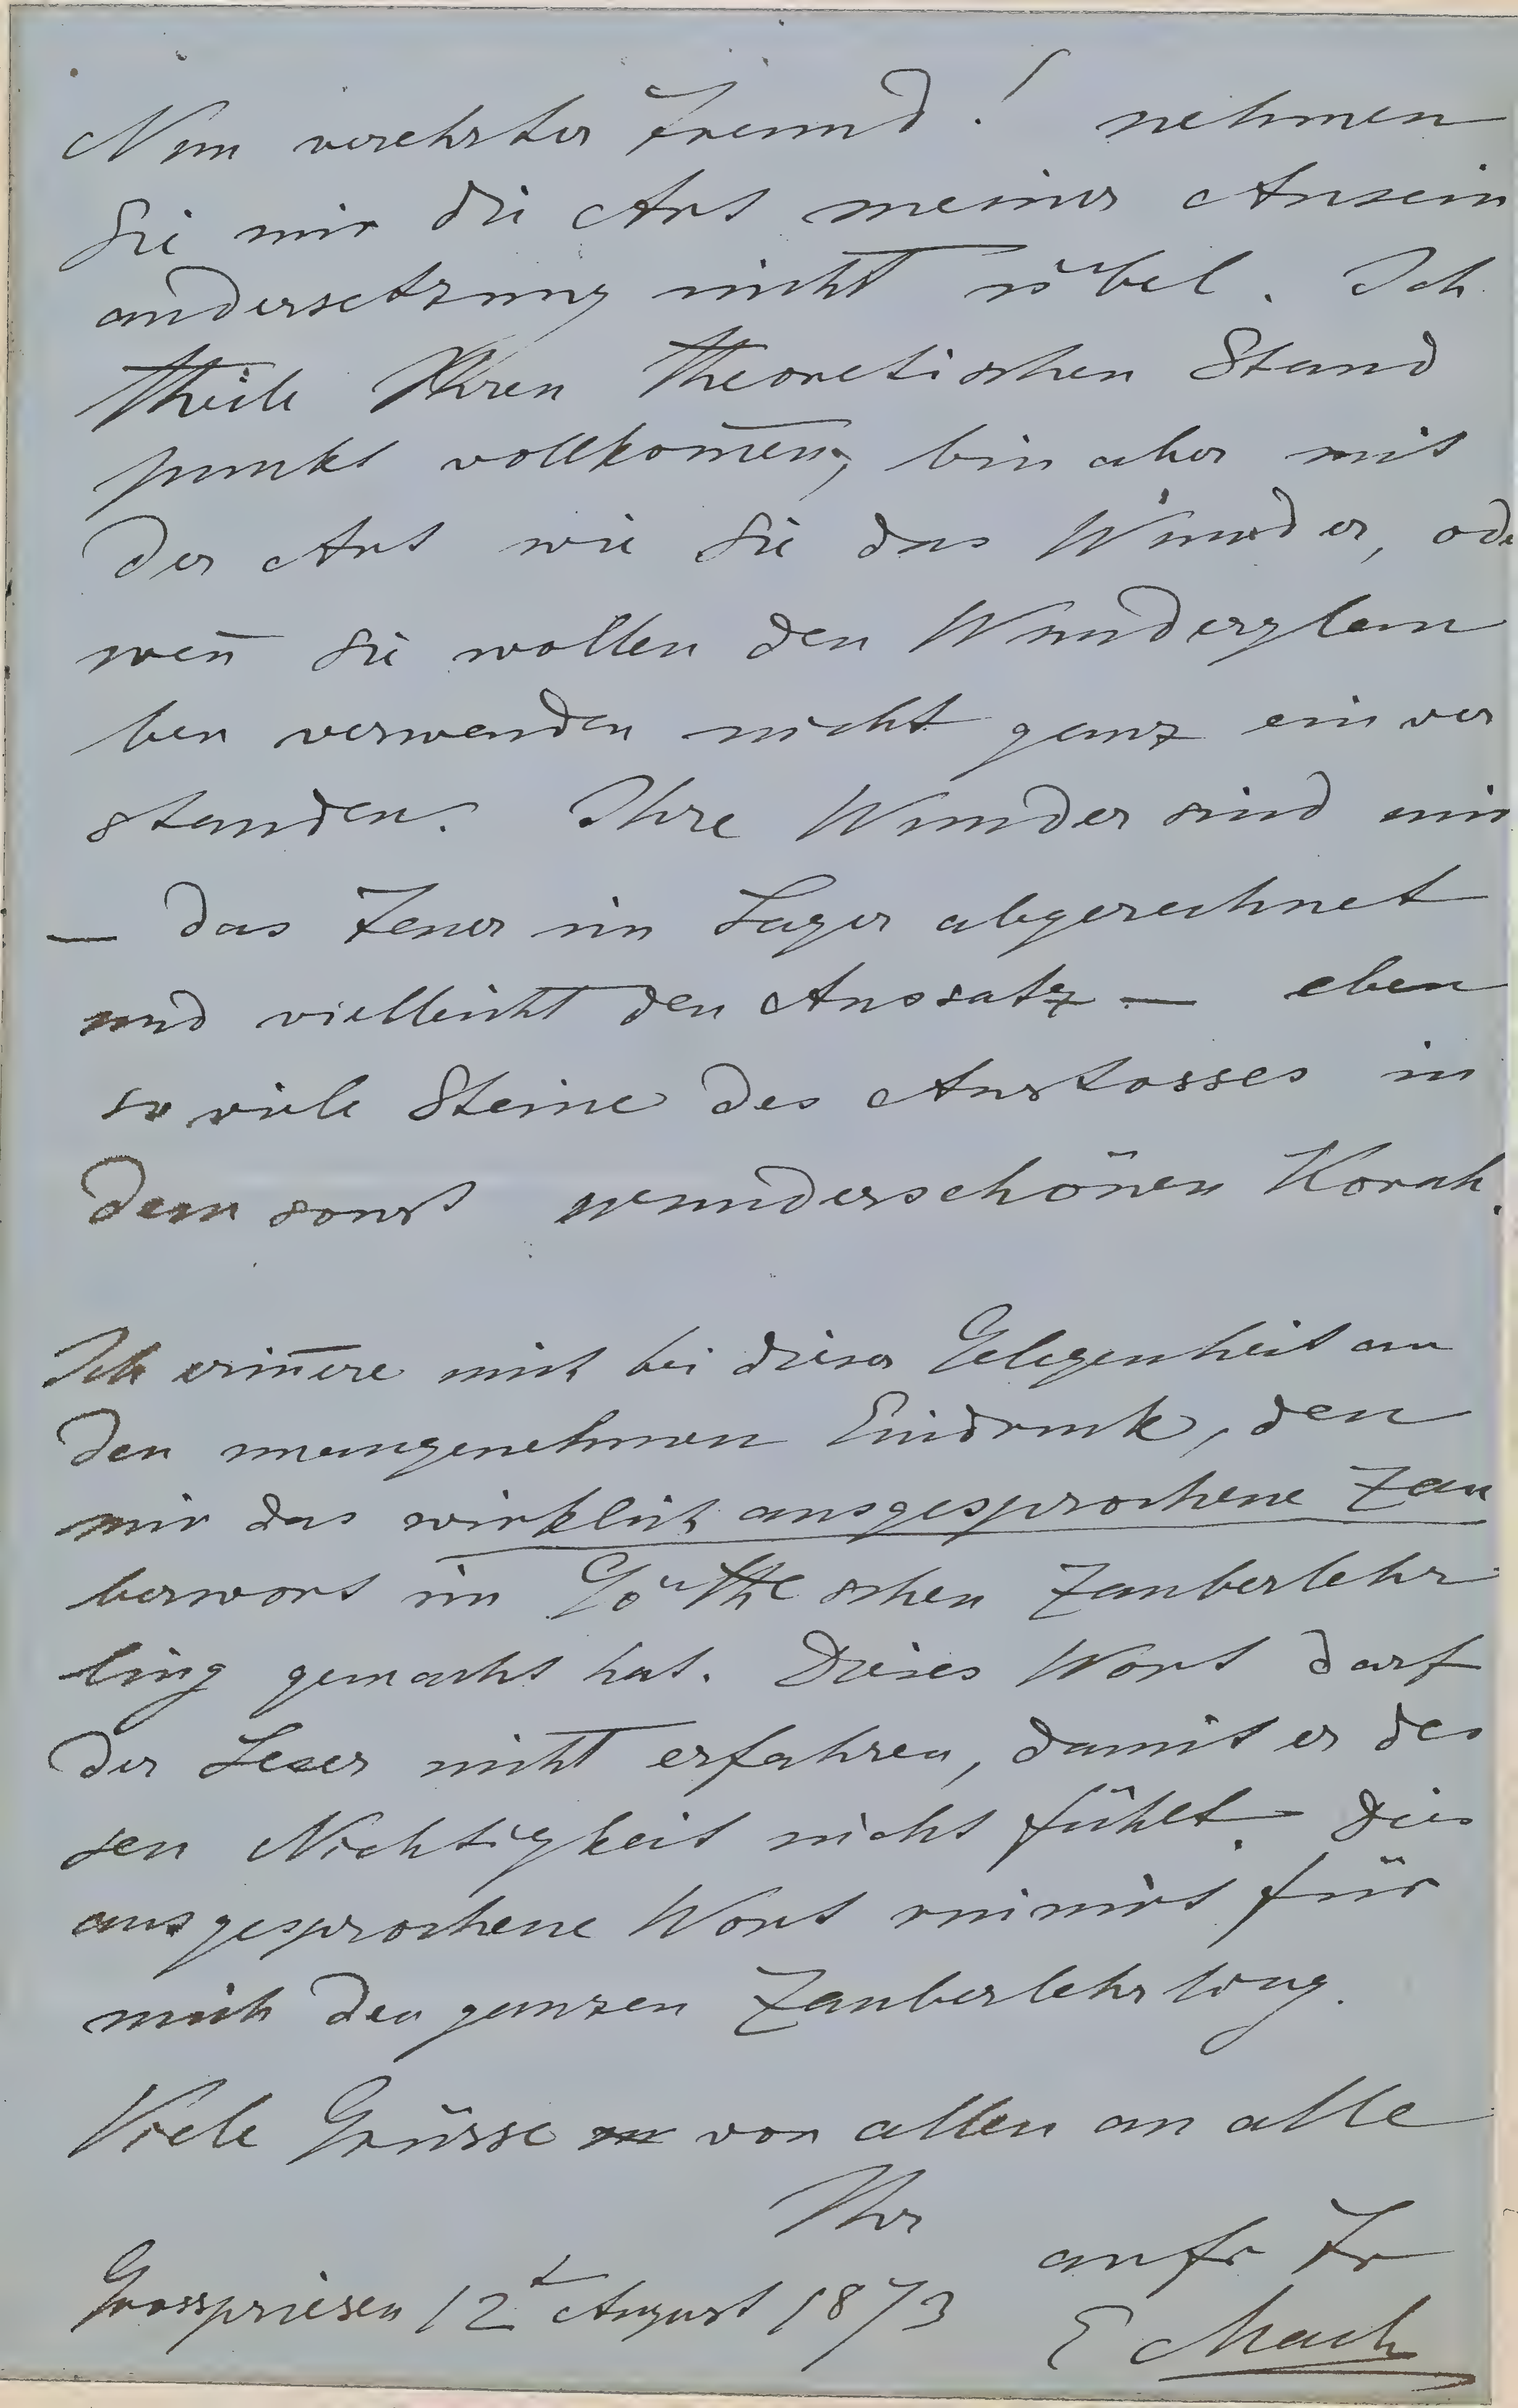 Nun verehrter Freund! nehmen
Sie mir die Art meiner Ausein
andersetzung nicht übel. Ich
theile Ihren theoretischen Stand
punkt vollkom̄en, bin aber mit
der Art wie Sie das Wunder, ode
wen̄ Sie wollen den Wunderglau
ben verwenden nicht ganz einver
standen. Ihre Wunder sind mir
— das Feuer im Lager abgerechnet
und vielleicht den Aussatz — eben
so viele Steine des Anstosses in
dem sonst wunderschönen Korah.
Ich erin̄ere mich bei dieser Gelegenheit an
den unangenehmen Eindruck, den
mir das wirklich ausgesprochene Zau
berwort im Göthe'schen Zauberlehr
ling gemacht hat. Dieses Wort darf
der Leser nicht erfahren, damit er des
sen Nichtigkeit nicht fühlt. Dies
ausgesprochene Wort ruinirt für
mich den ganzen Zauberlehrling.
Viele Grüsse von allen an alle
Ihr
aufr Fr
Grosspriesen 12t August 1873
E Mach